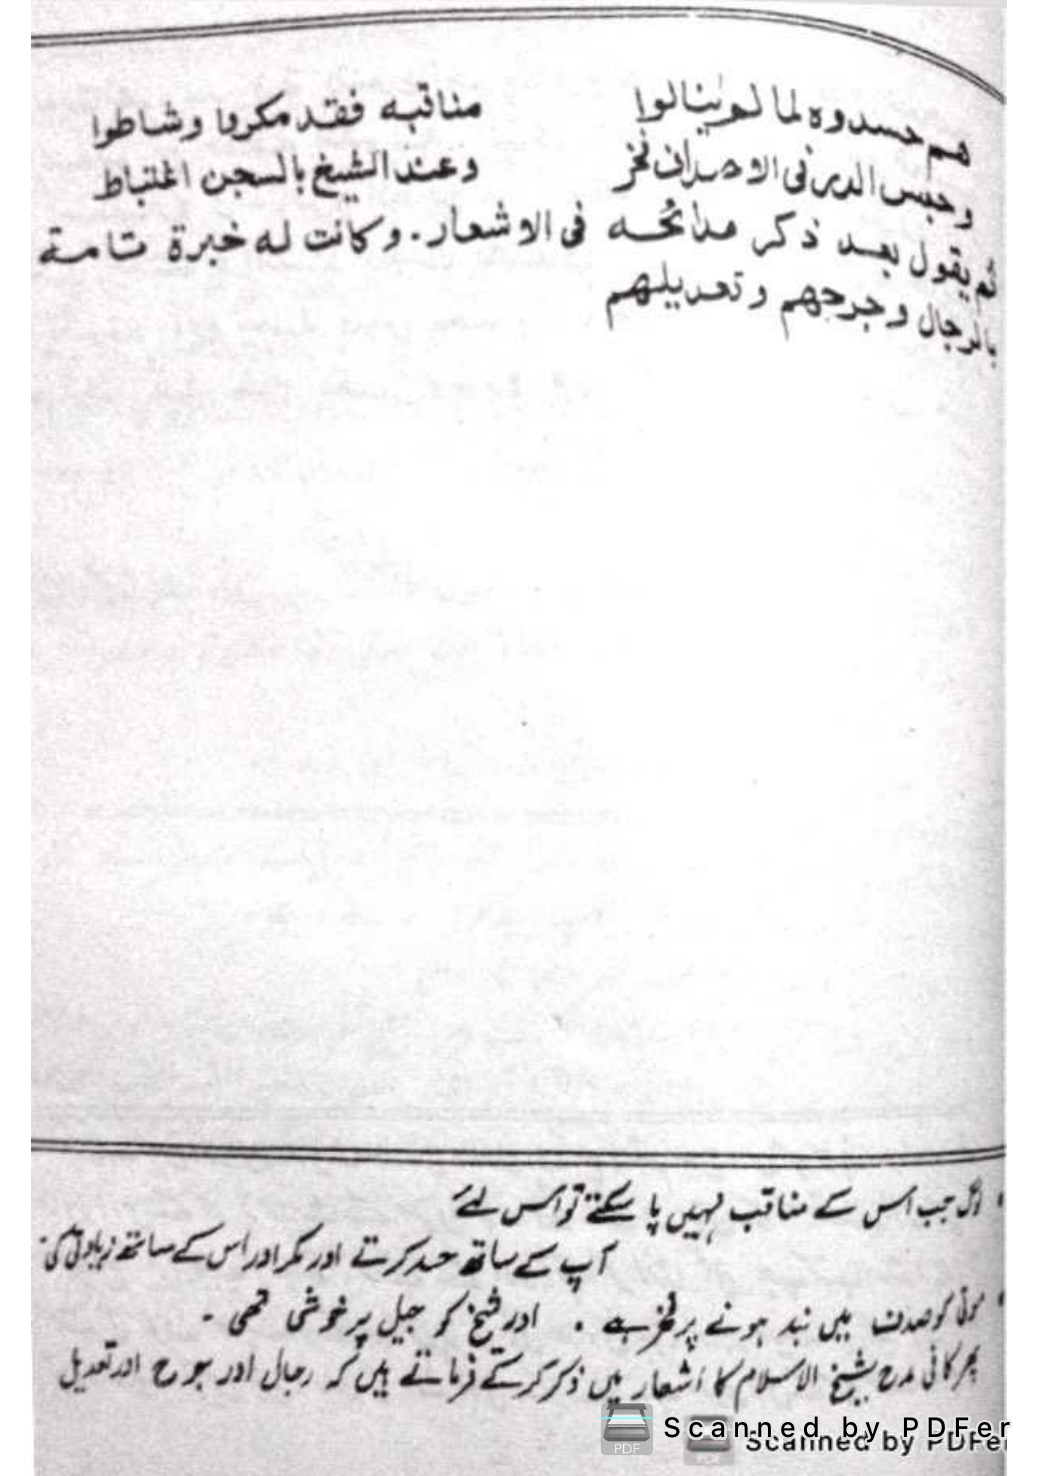 هم حسدوه لما لم ينالوا مناقبه فقد مكروا وشاطوا
وحبس الدر فى الاصداف فخر وعند الشيخ بالسجن اغتباط
ثم يقول بعد ذكر مدائحه فى الاشعار. وكانت له خبرة تامة
بالرجال وجرحهم وتعديلهم
جب اس کے مناقب نہیں پا سکتے تو اس لئے
آپ کے ساتھ حسد کرتے اور مکر اور اس کے ساتھ زیادتی کی
موتی کو صدف میں بند ہونے پر فخر ہے ۔ اور شیخ کو جیل پر خوشی تھی ۔
پھر کافی مدح شیخ الاسلام کا اشعار میں ذکر کر کے فرماتے ہیں کہ رجال اور جرح اور تعدیل
Scanned by PDFer
Scanned by PDFer